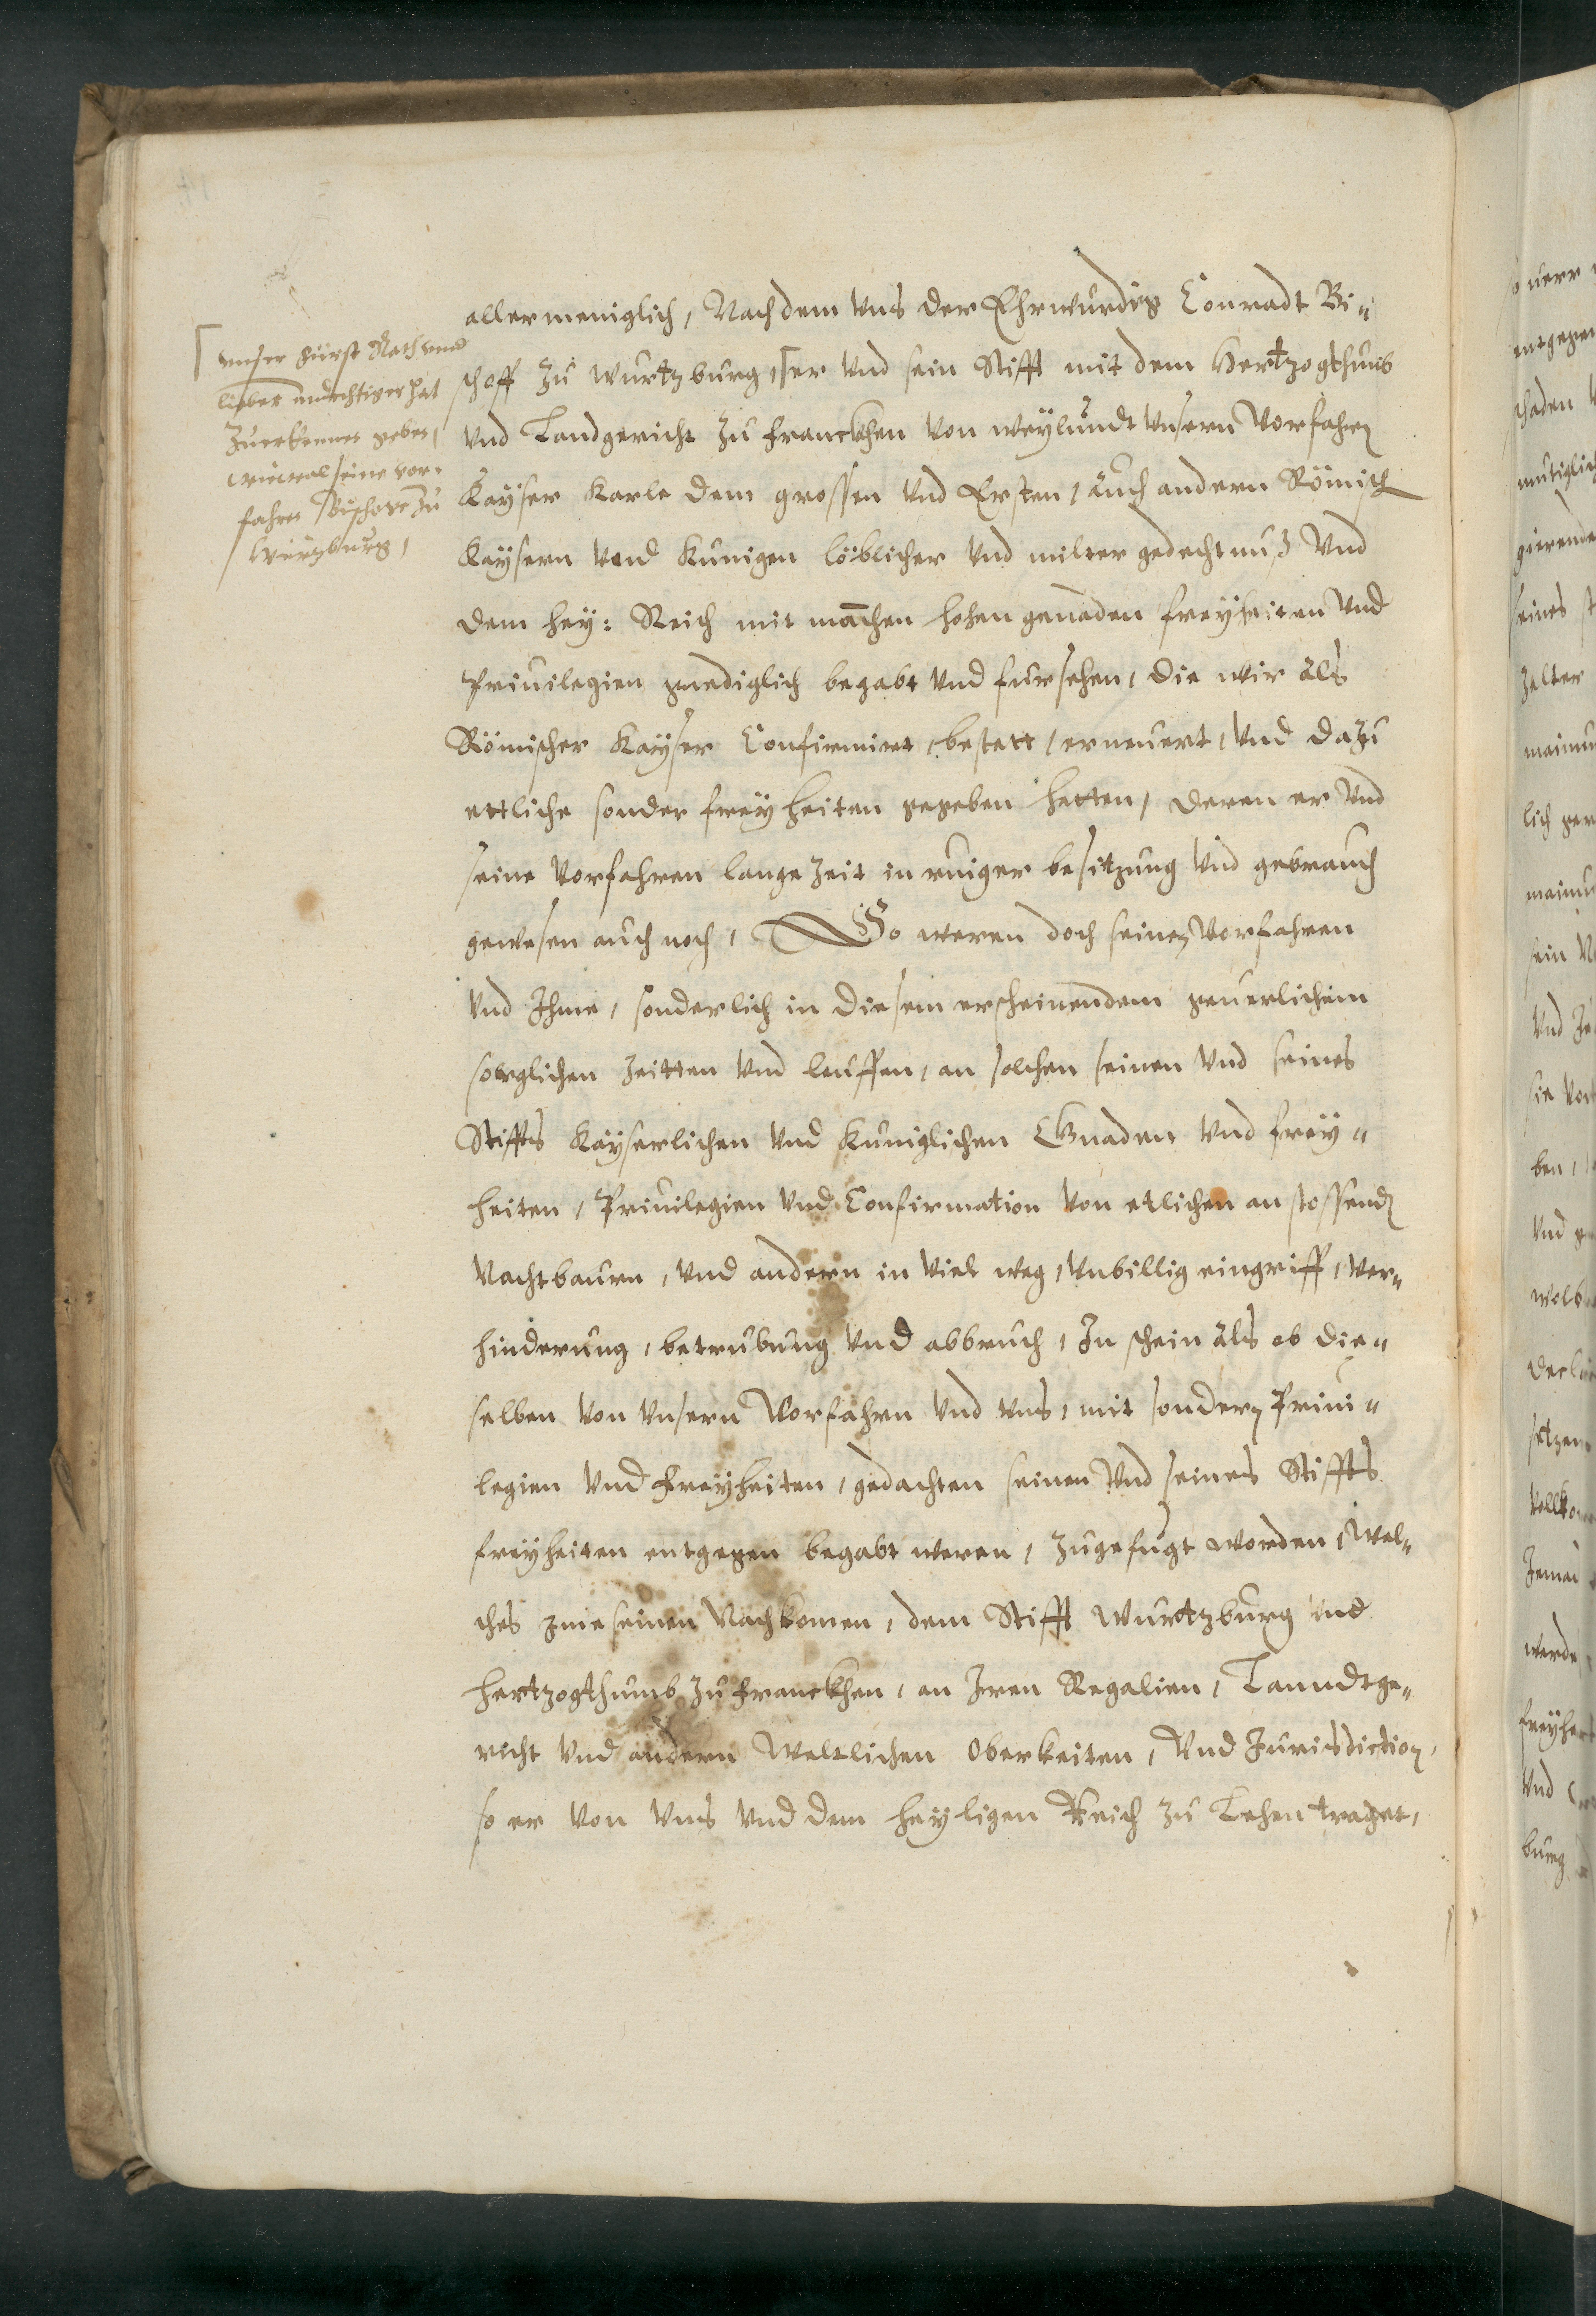 allermeniglich, Nachdem Vns der Ehrwurdig Conradt Bi„
schoff zu Wurtzburg, er Vnd sein Stifft mit dem Hertzogthumb
Vnd Landgericht zu Franckhen von weylundt Vnsern Vorfahren
Kayser Karle dem grossen Vnd Ersten, auch andern Römisch
Kaysern Vnd Kunigen löblicher Vnd milter gedechtnuß Vnd
dem Hey: Reich mit manchen hohen genaden freyheiten Vnd
Priuilegien gnediglich begabt Vnd fursehen, die wir als
Römischer Kayser Confirmirt, bestett, erneuert, Vnd dazu
ettliche sonder freyheiten gegeben hetten, deren er Vnd
seine Vorfahren lange zeit in ruiger besitzung Vnd gebrauch
gewesen auch noch, So weren doch seinen Vorfahren
Vnd Ihme, sonderlich in diesem erscheinendem geuerlichem
sorglichen zeitten Vnd leuffen, an solchen seinen Vnd seines
Stiffts Kayserlichen Vnd Kuniglichen Gnaden Vnd frey„
heiten, Priuilegien Vnd Confirmation Von etlichen anstossenden
Nachtbaurn, Vnd andern in Viel weg, Vnbillig eingriff, Ver„
hinderung, betrubung Vnd abbruch, In schein als ob die„
selben Von Vnsern Vorfahrn Vnd Vns, mit sondern Priui„
legien Vnd Freyheiten, gedachten seinen Vnd seines Stiffts
freyheiten entgegen begabt weren, zugefugt worden, Wel„
ches Ime seinen Nachkomen, dem Stifft Wurtzburg Vnd
Hertzogthumb zu Franckhen, an Iren Regalien, Lanndtge„
richt Vnd andern Weltlichen Oberkeiten, Vnd Jurisdiction,
so er Von Vns Vnd dem heyligen Reich zu Lehen traget,
vnser Fürst Rath vnnd
lieber andechtiger hat
zuerkennen geben,
wiewol seine vor„
fahren Bischove zu
Würzburg,